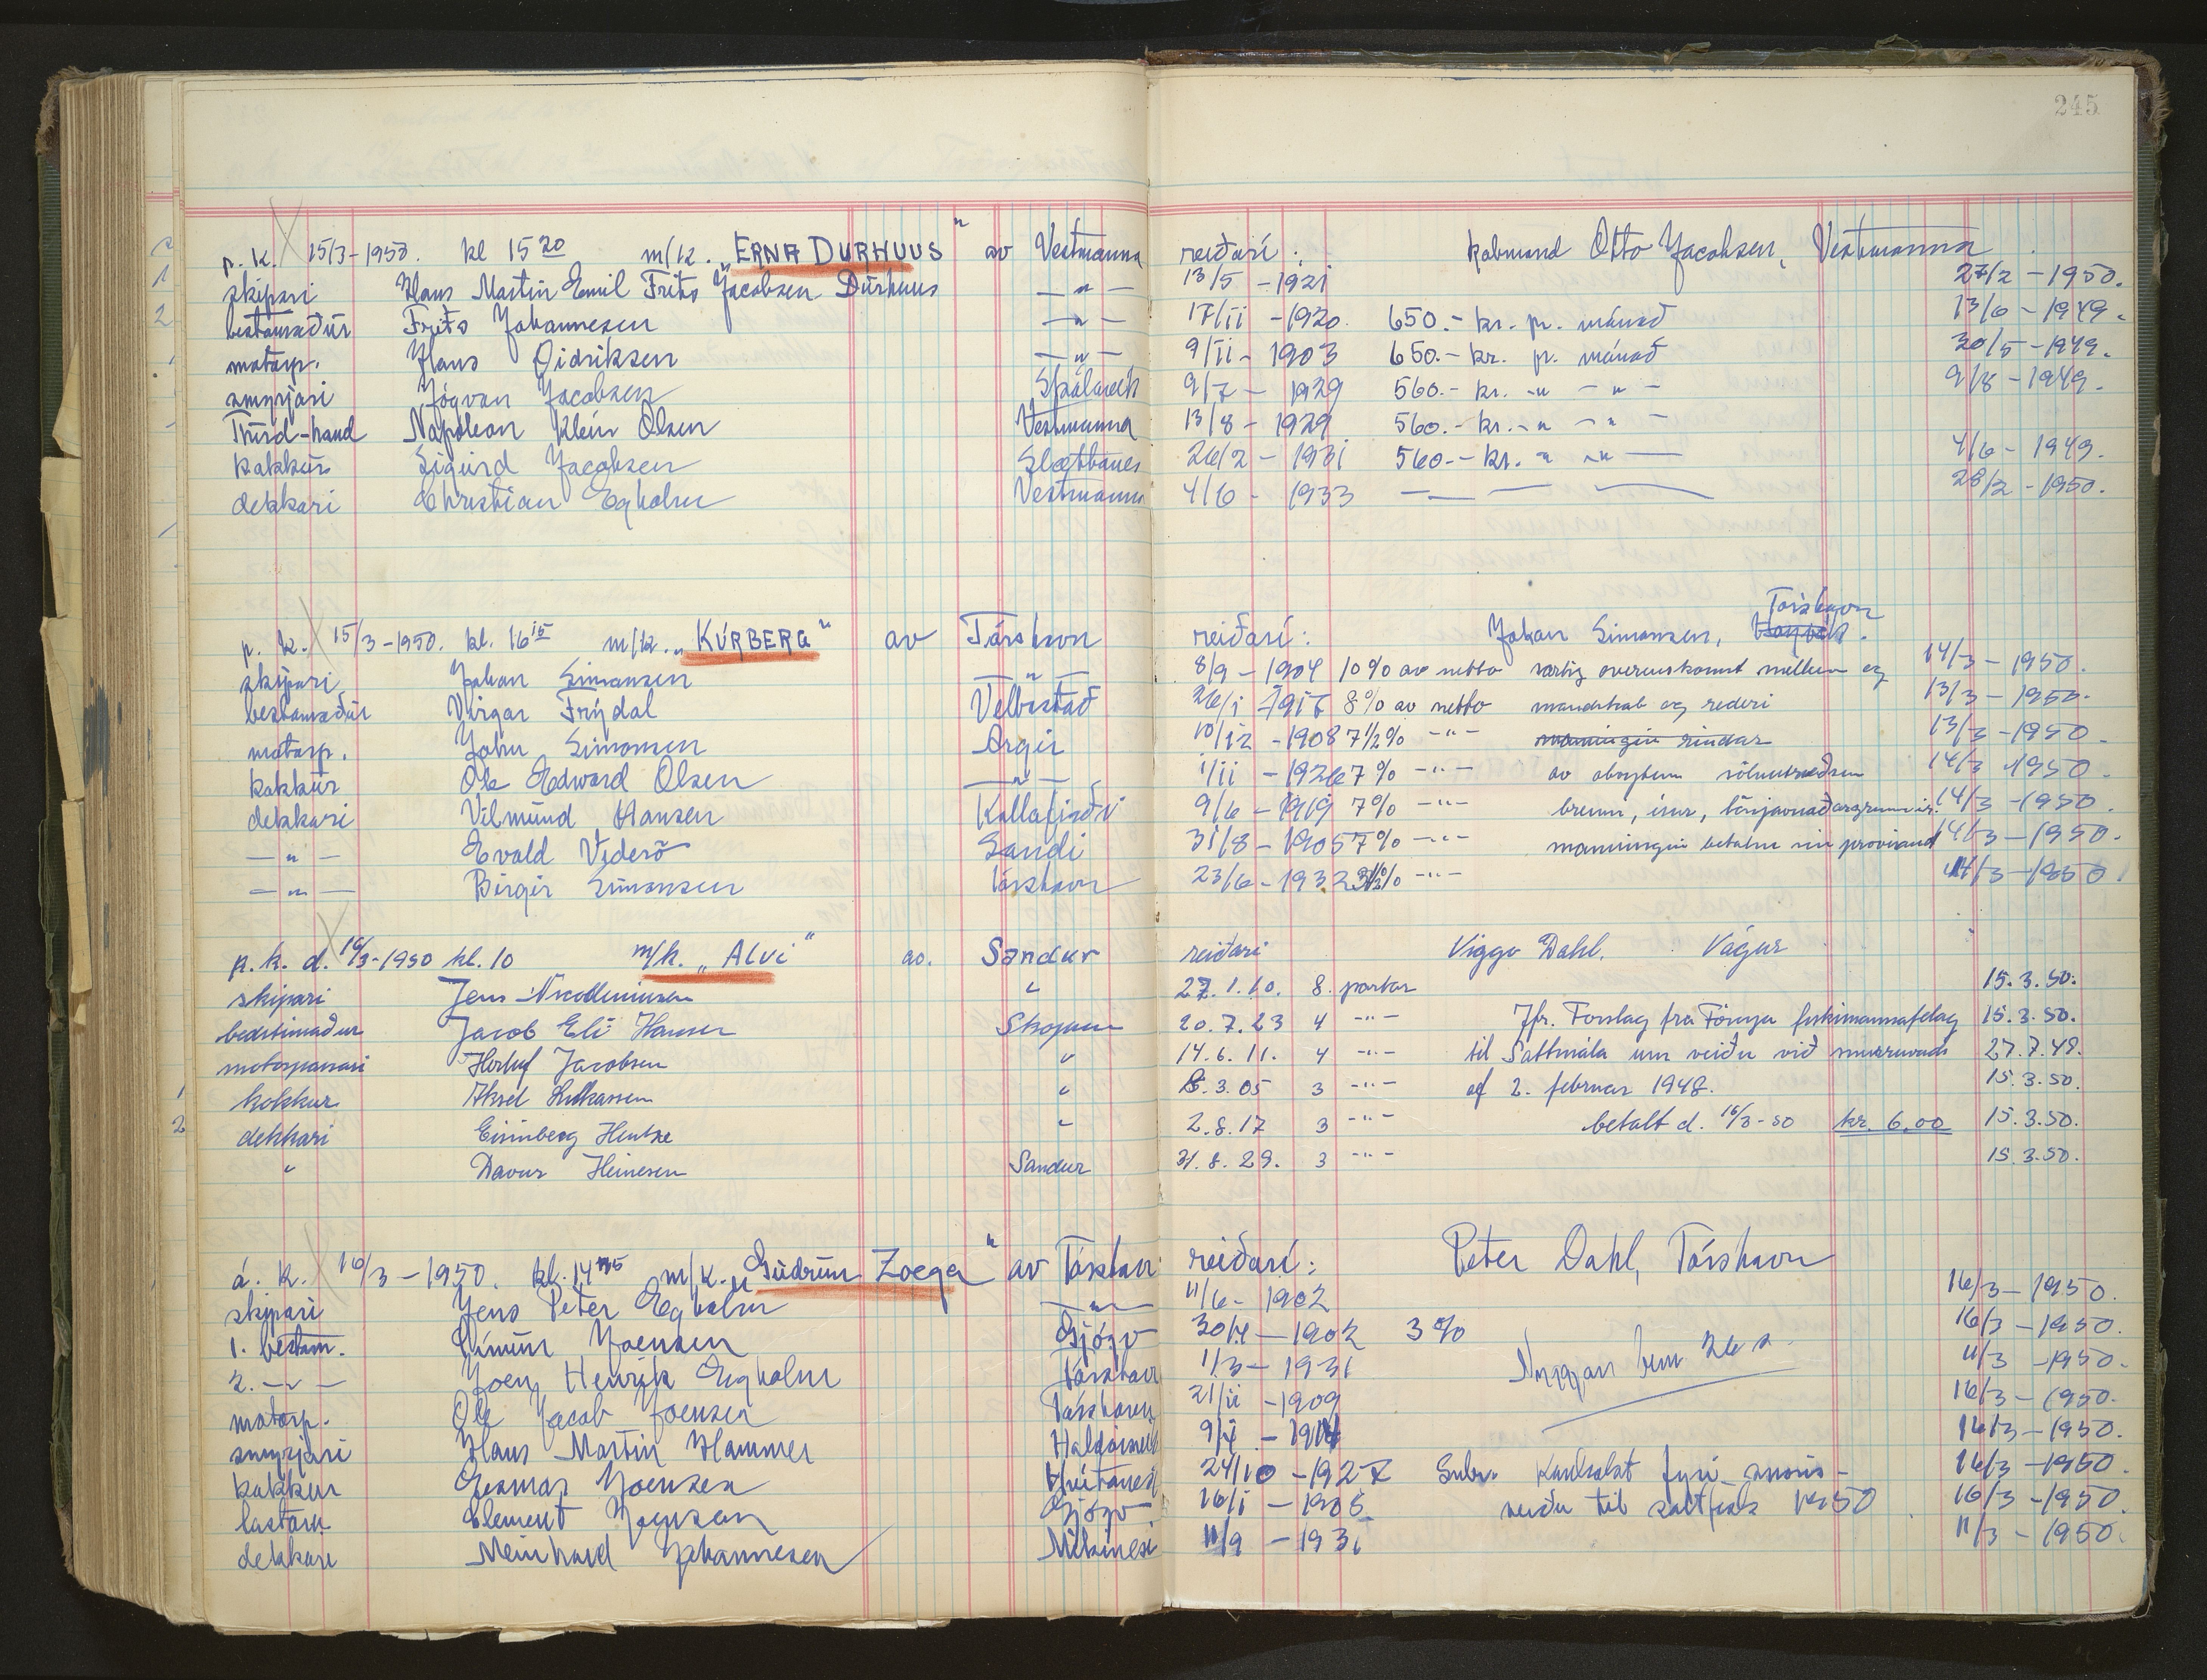 245
p. k. 15/3-1950. kl 15 20 m/k. „ERNA DURHUUS" av Vestmanna reiðari: Otto Jacobsen, Vestmanna
skipari Hans Martin Emil Frits Jacobsen Durhuus —"— 13/5 -1921 27/2 -1950.
bestamaður Frits Johannesen —"— 17/11 -1920. 650.- kr. pr. mánað 13/6 -1949.
motorp. Hans Didriksen —"— 9/11 - 1903 650.- kr. pr. mánað 30/5 -1949.
smyrjari Jógvan Jacobsen 9/7 - 1929 560.- kr. -"- -"- 9/8 -1949.
Third-hand Napoleon Klein Olsen Vestmanna 13/8 - 1929 560.- kr. -"- -"-
kokkur Sigurd Jacobsen 26/2 - 1931 560.- kr. -"- -"- 4/6 - 1949.
dekkari Christian Egholm Vestmanna 4/6 - 1933 28/2 -1950.
Tórshavn
p. k. 15/3-1950. kl. 16 15 m/k. „KÚRBERG" av Tórshavn reiðari: Johan Simonsen,
skipari Johan Simonsen —"— 8/9 - 1904 10% av netto overenskomst mellem og 14/3 - 1950.
bestamaður Virgar Frýdal Velbastað 26/1 8% av netto mandskab og rederi 13/3 - 1950.
motorp. John Simonsen Argir 10/12 - 1908 7 1/2% -"- manningin 13/3 - 1950.
kokkur Ole Edward Olsen —"— 1/11 - 1926 7% -"- av 14/3 1950.
dekkari Vilmund Hansen Kollafirði 9/6 - 1919 7% -"- 14/3 - 1950.
—"— Evald Viderö Sandi 31/8 - 1905 7% -"- manningin betalur sin proviant 14/3 - 1950.
—"— Birgir Simonsen Tórshavn 23/6 - 1932 -"- 14/3 - 1950.
p. k. d. 16/3-1950 kl. 10 m/k. „ALVI" av. Sandur reiðari Viggo Dahl. Vágur
skipari Jens " 27.1.10. 8. partar 15.3.50.
bedstimaður Jacob Eli Hansen Skopun 20.7.23 4 -"- Jfr. Forslag fra Föroya fiskimannafelag 15.3.50.
motorpassari Herluf Jacobsen " 14.6.11. 4 -"- til Sáttmála um veiðu við 27.7.49.
kokkur Aksel " 8.3.05 3 -"- af 2. februar 1948. 15.3.50.
dekkari Hentze " 2.8.17 3 -"- betalt d. 16/3-50 kr. 6.00 15.3.50.
" Davur Heinesen Sandur 31.8.29. 3 -"- 15.3.50.
á. k. 16/3 -1950. kl. 14 45 m/k. „Gudrun Zoega" av Tórshavn reiðari: Peter Dahl, Tórshavn
skipari Jens Peter Egholm —"— 11/6 - 1902 16/3 - 1950.
1. bestam. Símun Joensen Gjógv 1902 3% 16/3 - 1950.
2. —"— Joen Henrik Egholm Tórshavn 1/3 - 1931 11/3 - 1950.
motorp. Ole Jacob Joensen Tórshavn 21/11 - 1909 16/3 - 1950.
smyrjari Hans Martin Hammer 16/3 - 1950.
kokkur Joensen Hvítanesi 24/10 - 1927 fyri 16/3 - 1950.
lastarm. Clement Joensen Gjógv. 16/1 - veiðu til saltfisk 1950 16/3 - 1950.
dekkari Meinhard Johannesen Mikinesi 11/9 - 1931 11/3 - 1950.